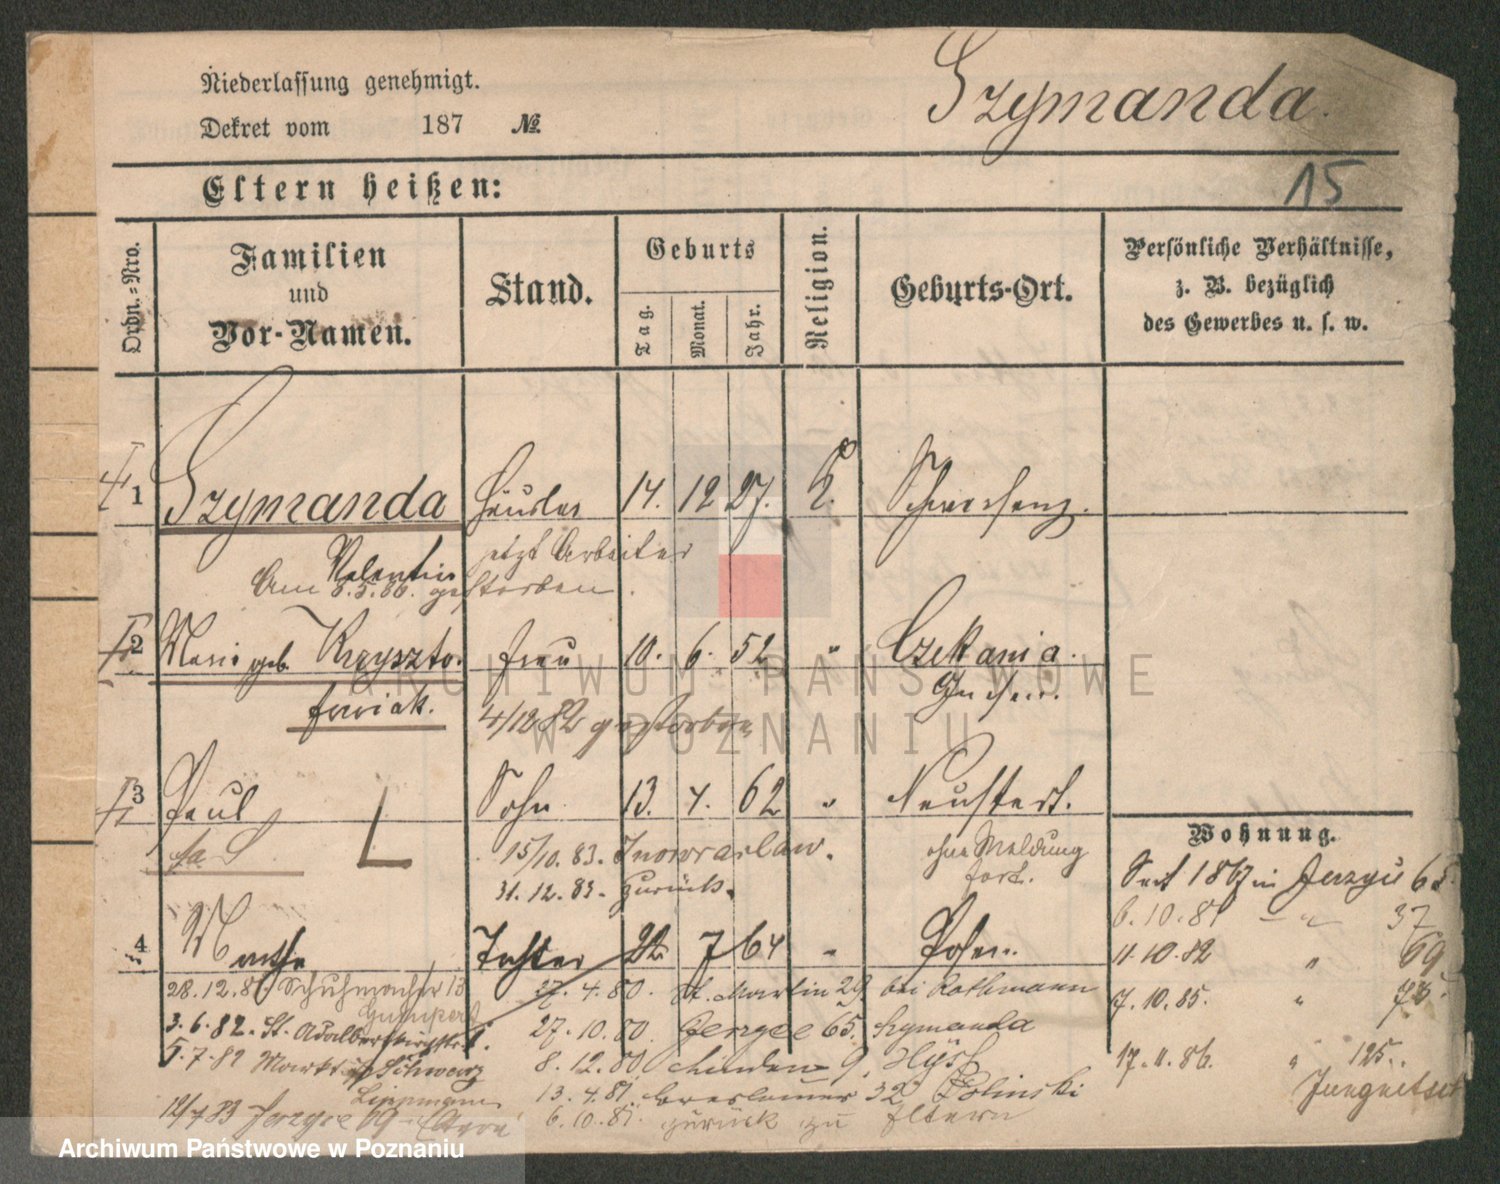 Niederlassung genehmigt.
Dekret vom 187 №
Szymanda.
15
Eltern heißen:
Ordn.-Nro.
Familien
und
Vor-Namen.
Stand.
Geburts
Tag.
Monat.
Jahr.
Religion.
Geburts-Ort.
Persönliche Verhältnisse,
z. B. bezüglich
des Gewerbes u. s. w.
1 Szymanda Häusler 14. 12 27. K. Schwersenz.
Valentin jetzt Arbeiter
Am 8.5.86. gestorben.
2 Marie geb. Kryszto- Frau 10. 6. 52 " Czekania.
fowiak. Gnesen.
4/12 82 gestorben
3 Paul Sohn 13. 4. 62 " Neustadt.
L 15/10. 83. Inowraclaw. ohne Meldung
fort.
31. 12. 83. zurück.
4 Martha Tochter 22 7 64 " Posen.
28. 12. 81 Schuhmacher 13
27. 4. 80. St. Martin 29 bei Rothmann
3. 6. 82. St. Adalbertstr. 1.
27. 10. 80. Jerzyce 65. Szymanda
5. 7. 82 Markt Schwarz
8. 12. 80 9.
Lippmann
13. 4. 81. Breslauer 32 Polinski
12/7 83 Jerzyce 69
6. 10. 81. zurück zu Eltern
Wohnung.
Seit 1867 in Jerzyce 65.
6. 10. 81 — " — 37
11. 10. 82 " 69
7. 10. 85. "
17. 11. 86. " 125.
ARCHIWUM PAŃSTWOWE
W POZNANIU
Archiwum Państwowe w Poznaniu